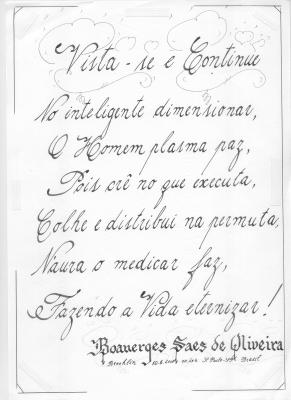 Vista-se e Continue
No inteligente dimensionar,
O Homem plasma paz,
Pois crê no que executa,
Colhe e distribui na permuta,
Naura o medicar faz,
Fazendo a Vida eternizar!
Boanerges Saes de Oliveira
Brooklin S. Paulo Brasil